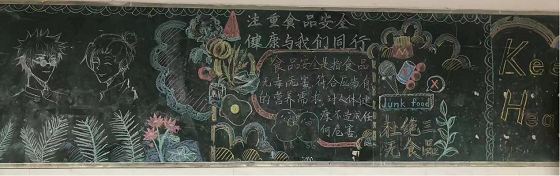 注重食品安全
健康与我们同行
食品安全是指食品
无毒无害 符合应当有
的营养需求 对人体健
康不造成任
何危害
Junk food
杜绝三
无食品
Kee
Hea